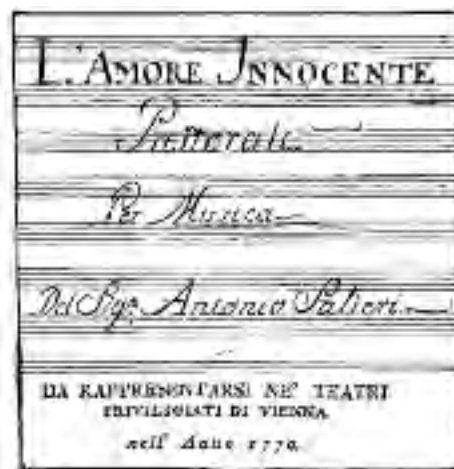 L'AMORE INNOCENTE
Pastorale
Per Musica
Del Sigr. Antonio Salieri.
DA RAPPRESENTARSI NE' TEATRI
PRIVILIGIATI DI VIENNA
nell' Anno 1770.